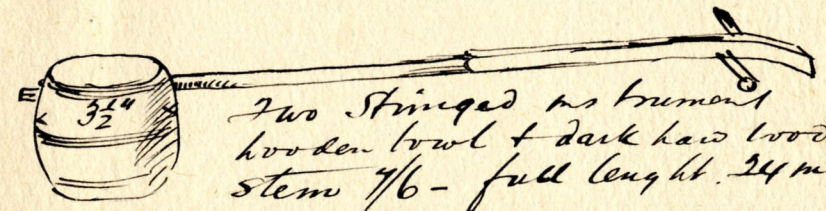 3½"
Two Stringed instrument
wooden bowl & dark hard wood
stem 7/6 - full lenght. 24 in